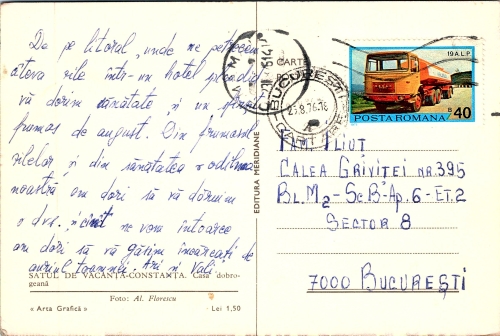 De pe litoral, unde ne petrecem
câteva zile într-un hotel splendid
vă dorim sănătate și un sfîrșit
frumos de august. Din frumosul
zilelor și din sănătatea odihna
noastră am dori să vă dăruim
și dvs. și cînd ne vom întoarce
am dori să vă găsim încărcați de
aurul toamnei. Ari și Vali
SATUL DE VACANȚA-CONSTANȚA. Casă dobro-
geană
Foto: Al. Florescu
« Arta Grafică »
Lei 1,50
EDITURA MERIDIANE
CARTE
BUCUREȘTI
23.8.76.18
19 A.L.P
POSTA ROMANA
B 40
FAM ILIUȚ
CALEA GRIVIȚEI NR.395
BL.M2-SC.B-AP.6-ET.2
SECTOR 8
7000 BUCUREȘTI